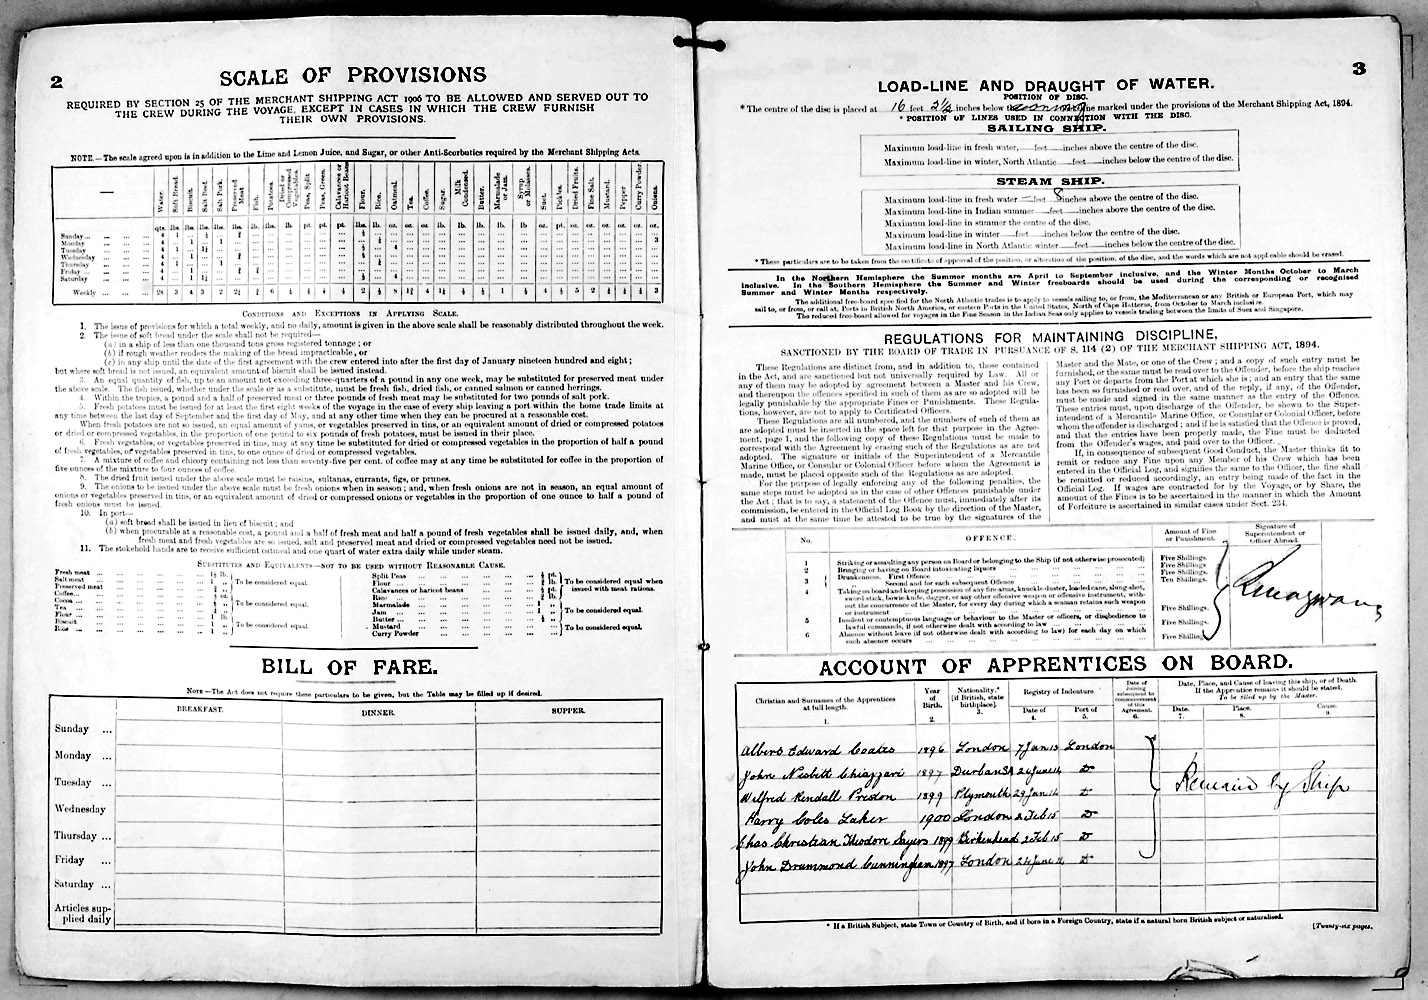 2
SCALE OF PROVISIONS
REQUIRED BY SECTION 25 OF THE MERCHANT SHIPPING ACT 1906 TO BE ALLOWED AND SERVED OUT TO
THE CREW DURING THE VOYAGE, EXCEPT IN CASES IN WHICH THE CREW FURNISH
THEIR OWN PROVISIONS.
NOTE.—The scale agreed upon is in addition to the Lime and Lemon Juice, and Sugar, or other Anti-Scorbutics required by the Merchant Shipping Acts.
Water. Soft Bread. Biscuit. Salt Beef. Salt Pork. Preserved Meat. Fish. Potatoes. Dried or Compressed Vegetables. Peas, Split Peas, Green. Calavances or Haricot Beans Flour. Rice. Oatmeal. Tea. Coffee. Sugar. Milk Condensed. Butter. Marmalade or Jam. Syrup or Molasses. Suet. Pickles. Dried Fruits. Fine Salt. Mustard. Pepper Curry Powder. Onions.
Sunday
Monday
Tuesday
Wednesday
Thursday
Friday
Saturday
Weekly
CONDITIONS AND EXCEPTIONS IN APPLYING SCALE.
1. The issue of provisions for which a total weekly, and no daily, amount is given in the above scale shall be reasonably distributed throughout the week.
2. The issue of soft bread under the scale shall not be required—
(a) in a ship of less than one thousand tons gross registered tonnage; or
(b) if rough weather renders the making of the bread impracticable, or
(c) in any ship until the date of the first agreement with the crew entered into after the first day of January nineteen hundred and eight;
but where soft bread is not issued, an equivalent amount of biscuit shall be issued instead.
3. An equal quantity of fish, up to an amount not exceeding three-quarters of a pound in any one week, may be substituted for preserved meat under
the above scale. The fish issued, whether under the scale or as a substitute, must be fresh fish, dried fish, or canned salmon or canned herrings.
4. Within the tropics, a pound and a half of preserved meat or three pounds of fresh meat may be substituted for two pounds of salt pork.
5. Fresh potatoes must be issued for at least the first eight weeks of the voyage in the case of every ship leaving a port within the home trade limits at
any time between the last day of September and the first day of May, and at any other time when they can be procured at a reasonable cost.
When fresh potatoes are not so issued, an equal amount of yams, or vegetables preserved in tins, or an equivalent amount of dried or compressed potatoes
or dried or compressed vegetables, in the proportion of one pound to six pounds of fresh potatoes, must be issued in their place.
6. Fresh vegetables, or vegetables preserved in tins, may at any time be substituted for dried or compressed vegetables in the proportion of half a pound
of fresh vegetables, or vegetables preserved in tins, to one ounce of dried or compressed vegetables.
7. A mixture of coffee and chicory containing not less than seventy-five per cent. of coffee may at any time be substituted for coffee in the proportion of
five ounces of the mixture to four ounces of coffee.
8. The dried fruit issued under the above scale must be raisins, sultanas, currants, figs, or prunes.
9. The onions to be issued under the above scale must be fresh onions when in season; and, when fresh onions are not in season, an equal amount of
onions or vegetables preserved in tins, or an equivalent amount of dried or compressed onions or vegetables in the proportion of one ounce to half a pound of
fresh onions must be issued.
10. In port—
(a) soft bread shall be issued in lieu of biscuit; and
(b) when procurable at a reasonable cost, a pound and a half of fresh meat and half a pound of fresh vegetables shall be issued daily, and, when
fresh meat and fresh vegetables are so issued, salt and preserved meat and dried or compressed vegetables need not be issued.
11. The stokehold hands are to receive sufficient oatmeal and one quart of water extra daily while under steam.
SUBSTITUTES AND EQUIVALENTS—NOT TO BE USED WITHOUT REASONABLE CAUSE.
Fresh meat
Salt meat
Preserved meat
To be considered equal.
Coffee
Cocoa
Tea
To be considered equal.
Flour
Biscuit
Rice
To be considered equal.
Split Peas
Flour
Calavances or haricot beans
Rice
To be considered equal when
issued with meat rations.
Marmalade
Jam
Butter
To be considered equal.
Mustard
Curry Powder
To be considered equal.
BILL OF FARE.
NOTE—The Act does not require these particulars to be given, but the Table may be filled up if desired.
BREAKFAST. DINNER. SUPPER.
Sunday ...
Monday ...
Tuesday ...
Wednesday
Thursday ...
Friday ...
Saturday ...
Articles sup-
plied daily
3
LOAD-LINE AND DRAUGHT OF WATER.
POSITION OF DISC.
* The centre of the disc is placed at 16 feet 2½ inches below the line marked under the provisions of the Merchant Shipping Act, 1894.
* POSITION OF LINES USED IN CONNECTION WITH THE DISC.
SAILING SHIP.
Maximum load-line in fresh water, feet inches above the centre of the disc.
Maximum load-line in winter, North Atlantic feet inches below the centre of the disc.
STEAM SHIP.
Maximum load-line in fresh water feet 8 inches above the centre of the disc.
Maximum load-line in Indian summer feet inches above the centre of the disc.
Maximum load-line in summer the centre of the disc.
Maximum load-line in winter feet inches below the centre of the disc.
Maximum load-line in North Atlantic winter feet inches below the centre of the disc.
* These particulars are to be taken from the certificate of approval of the position, or alteration of the position, of the disc, and the words which are not applicable should be erased.
In the Northern Hemisphere the Summer months are April to September inclusive, and the Winter Months October to March
inclusive. In the Southern Hemisphere the Summer and Winter freeboards should be used during the corresponding or recognised
Summer and Winter Months respectively.
The additional free-board specified for the North Atlantic trades is to apply to vessels sailing to, or from, the Mediterranean or any British or European Port, which may
sail to, or from, or call at, Ports in British North America, or Eastern Ports in the United States, North of Cape Hatteras, from October to March inclusive.
The reduced free-board allowed for voyages in the Fine Season in the Indian Seas only applies to vessels trading between the limits of Suez and Singapore.
REGULATIONS FOR MAINTAINING DISCIPLINE,
SANCTIONED BY THE BOARD OF TRADE IN PURSUANCE OF S. 114 (2) OF THE MERCHANT SHIPPING ACT, 1894.
These Regulations are distinct from, and in addition to, those contained
in the Act, and are sanctioned but not universally required by Law. All or
any of them may be adopted by agreement between a Master and his Crew,
and thereupon the offences specified in such of them as are so adopted will be
legally punishable by the appropriate Fines or Punishments. These Regula-
tions, however, are not to apply to Certificated Officers.
These Regulations are all numbered, and the numbers of such of them as
are adopted must be inserted in the space left for that purpose in the Agree-
ment, page 1, and the following copy of these Regulations must be made to
correspond with the Agreement by erasing such of the Regulations as are not
adopted. The signature or initials of the Superintendent of a Mercantile
Marine Office, or Consular or Colonial Officer before whom the Agreement is
made, must be placed opposite such of the Regulations as are adopted.
For the purpose of legally enforcing any of the following penalties, the
same steps must be adopted as in the case of other Offences punishable under
the Act; that is to say, a statement of the Offence must, immediately after its
commission, be entered in the Official Log Book by the direction of the Master,
and must at the same time be attested to be true by the signatures of the
Master and the Mate, or one of the Crew; and a copy of such entry must be
furnished, or the same must be read over to the Offender, before the ship reaches
any Port or departs from the Port at which she is; and an entry that the same
has been so furnished or read over, and of the reply, if any, of the Offender,
must be made and signed in the same manner as the entry of the Offence.
These entries must, upon discharge of the Offender, be shown to the Super-
intendent of a Mercantile Marine Office, or Consular or Colonial Officer, before
whom the offender is discharged; and if he is satisfied that the Offence is proved,
and that the entries have been properly made, the Fine must be deducted
from the Offender's wages, and paid over to the Officer.
If, in consequence of subsequent Good Conduct, the Master thinks fit to
remit or reduce any Fine upon any Member of his Crew which has been
entered in the Official Log, and signifies the same to the Officer, the fine shall
be remitted or reduced accordingly, an entry being made of the fact in the
Official Log. If wages are contracted for by the Voyage, or by Share, the
amount of the Fines is to be ascertained in the manner in which the Amount
of Forfeiture is ascertained in similar cases under Sect. 234.
No. OFFENCE. Amount of Fine or Punishment. Signature of Superintendent or Officer Abroad.
1 Striking or assaulting any person on Board or belonging to the Ship (if not otherwise prosecuted) Five Shillings.
2 Bringing or having on Board intoxicating liquors Five Shillings.
3 Drunkenness. First Offence Five Shillings.
Second and for each subsequent Offence Ten Shillings.
4 Taking on board and keeping possession of any fire-arms, knuckle-duster, loaded cane, slung-shot,
sword-stick, bowie-knife, dagger, or any other offensive weapon or offensive instrument, with-
out the concurrence of the Master, for every day during which a seaman retains such weapon
or instrument Five Shillings.
5 Insolent or contemptuous language or behaviour to the Master or officers, or disobedience to
lawful commands, if not otherwise dealt with according to law Five Shillings.
6 Absence without leave (if not otherwise dealt with according to law) for each day on which
such absence occurs Five Shillings.
ACCOUNT OF APPRENTICES ON BOARD.
Christian and Surnames of the Apprentices at full length. Year of Birth. Nationality.* [if British, state birthplace]. Registry of Indenture Date of Port of Date of Joining subsequent to commencement of this Agreement. Date, Place, and Cause of leaving this ship, or of Death.
If the Apprentice remains it should be stated.
To be filled up by the Master.
1. 2. 3. 4. 5. 6. Date. 7. Place. 8. Cause. 9.
Albert Edward Coates 1896 London 7 Jan 13 London
John Nesbitt Chiazzari 1897 Durban SA 24 June 14 Do
Wilfred Kendall Preston 1899 Plymouth 29 Jan 14 Do
Remain by Ship
Harry Coles Laker 1900 London 2 Feb 15 Do
Chas Christian Theodore Sayers 1899 Birkenhead 2 Feb 15 Do
John Drummond Cunningham 1897 London 24 June 14 Do
* If a British Subject, state Town or Country of Birth, and if born in a Foreign Country, state if a natural born British subject or naturalised.
[Twenty-six pages.